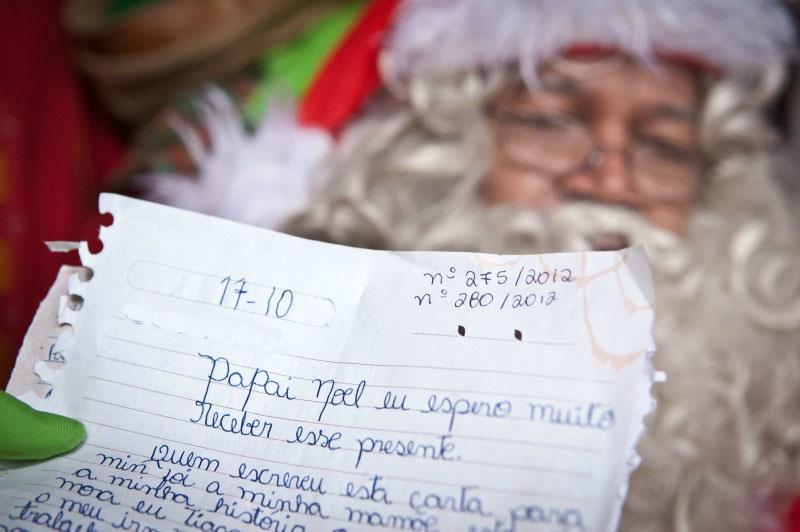 17-10
nº 275/2012
nº 280/2012
Papai Noel eu espero muito
Receber esse presente.
Quem escreveu esta carta para
min foi a minha mamãe
a minha historia
mora eu Tiago
o meu irm
trabal